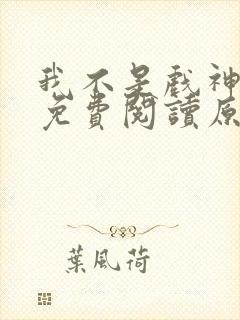 我不是戲神
免費閱讀原
葉風荷